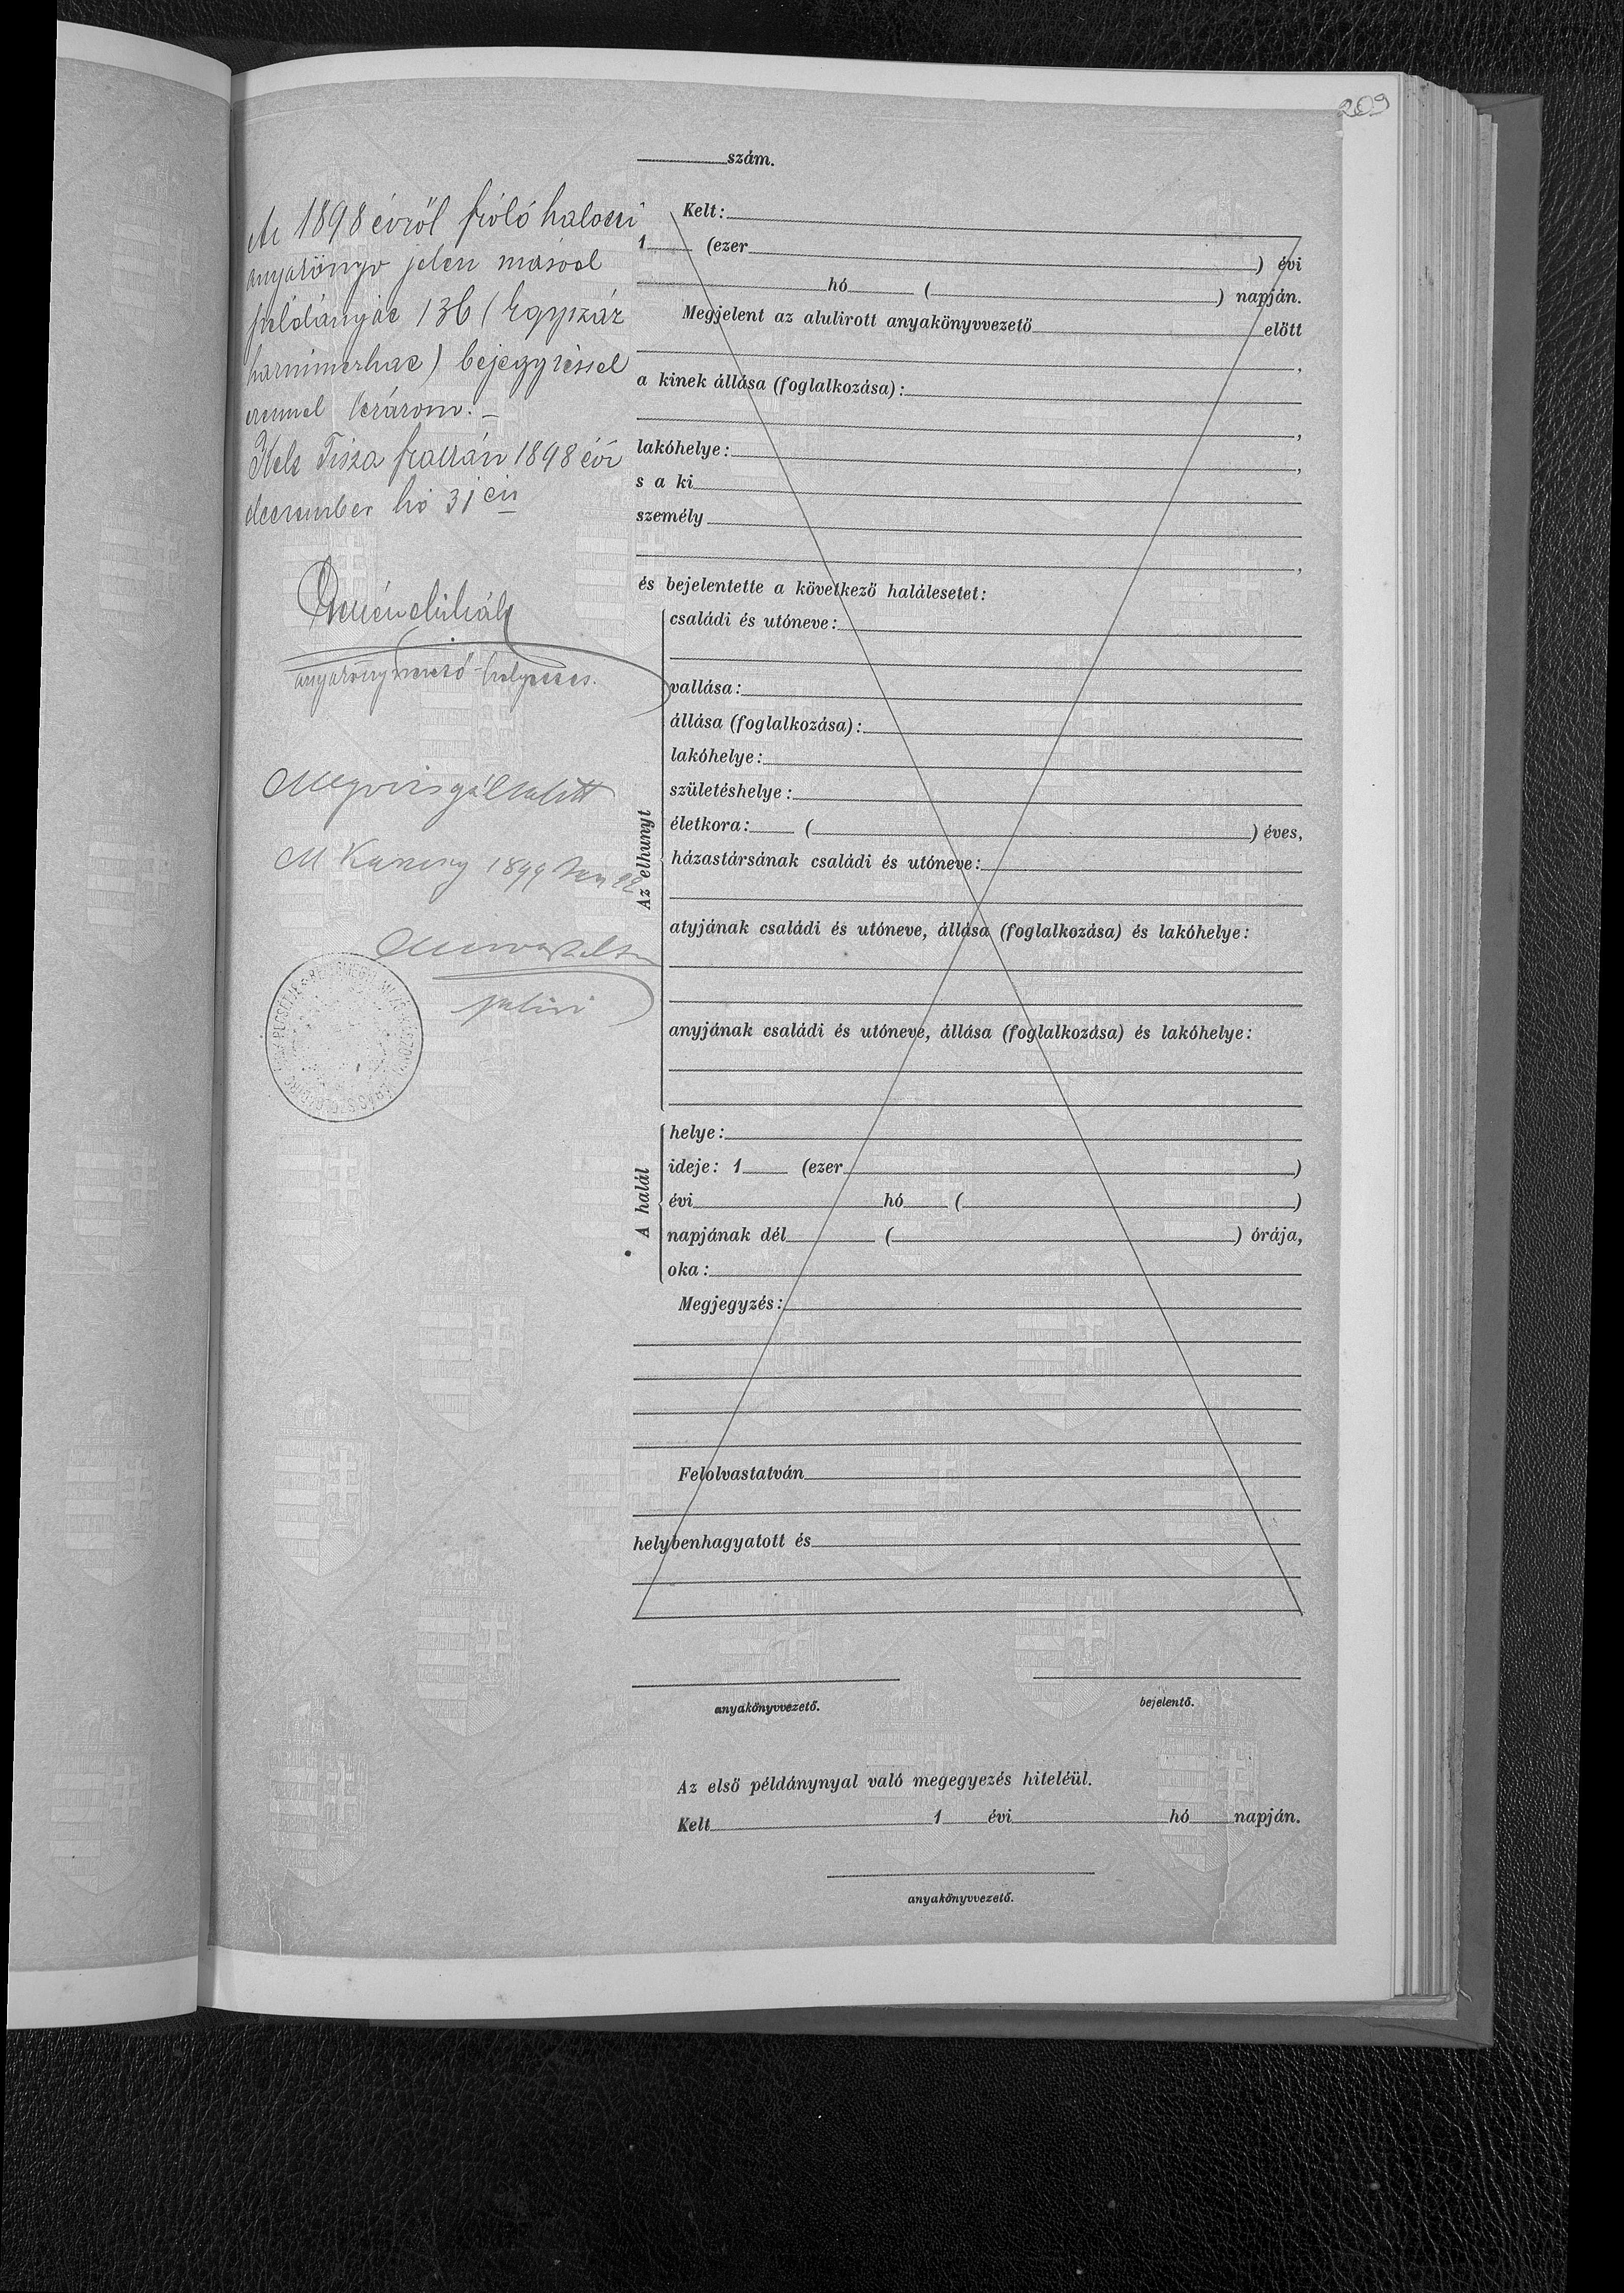 209
szám.
Az 1898 évről szóló halotti
anyakönyv jelen másod
példányát 136 (Egyszáz
harminczhat) bejegyzéssel
ezennel lezárom. –
Kelt Tisza 1898 évi
deczember hó 31 én
anyakönyvvezető helyettes.
Megvizsgáltatott
M 1899
Kelt:
1 (ezer ) évi
hó ( ) napján.
Megjelent az alulirott anyakönyvvezető előtt
,
a kinek állása (foglalkozása):
,
lakóhelye: ,
s a ki
személy
,
és bejelentette a következő halálesetet:
Az elhunyt
családi és utóneve:
vallása:
állása (foglalkozása):
lakóhelye:
születéshelye:
életkora: ( ) éves,
házastársának családi és utóneve:
atyjának családi és utóneve, állása (foglalkozása) és lakóhelye:
anyjának családi és utóneve, állása (foglalkozása) és lakóhelye:
A halál
helye:
ideje: 1 (ezer )
évi hó ( )
napjának dél ( ) órája,
oka:
Megjegyzés:
Felolvastatván
helybenhagyatott és
anyakönyvvezető.
bejelentő.
Az első példánynyal való megegyezés hiteléül.
Kelt 1 évi hó napján.
anyakönyvvezető.